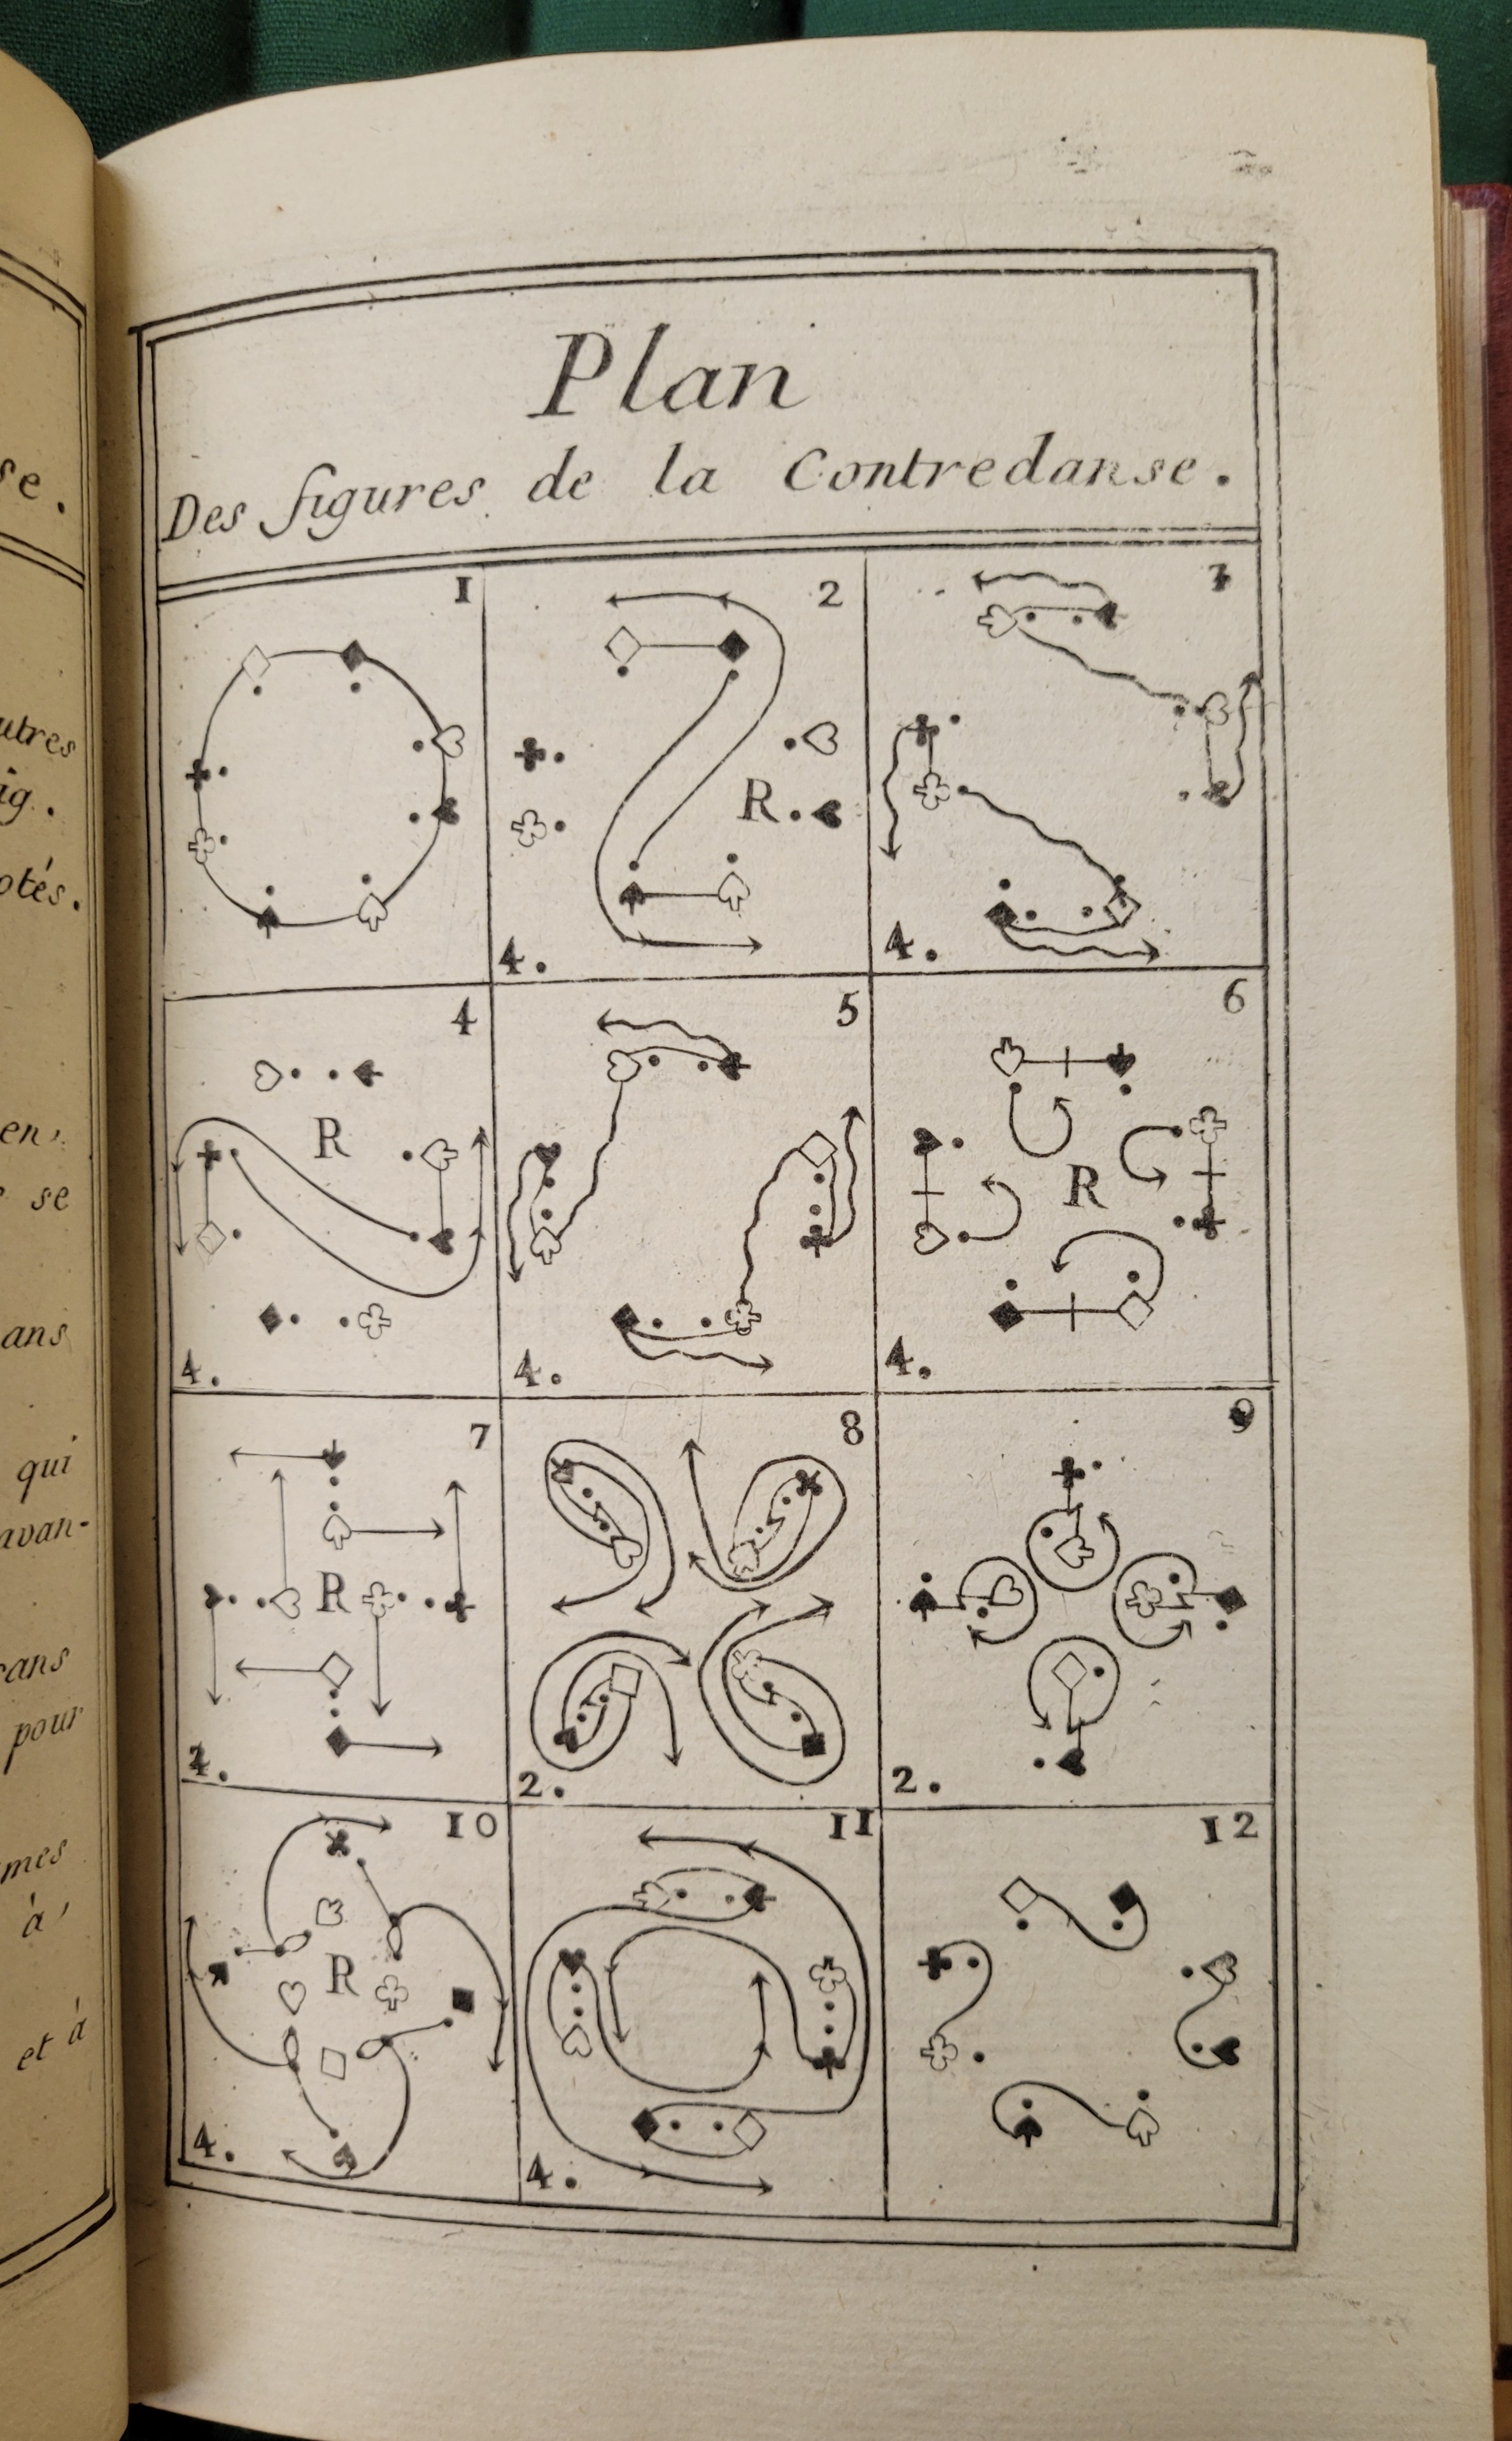 Plan
Des figures de la Contredanse.
1
2
R
4.
3
4.
4
R
4.
5
4.
6
R
4.
7
R
2.
8
2.
9
2.
10
R
4.
11
4.
12
se.
utres
ig.
otés.
en,
se
ans
qui
avan-
rans
pour
mes
à
et à